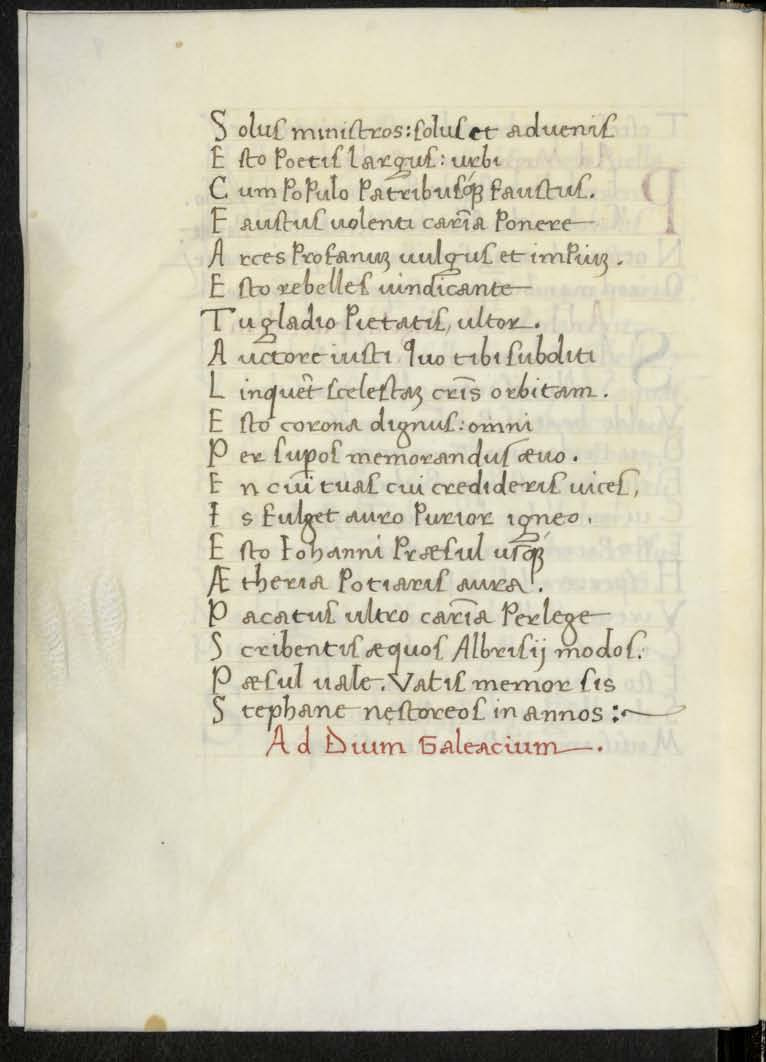 Solus ministros: solus et aduenis
Esto Poetis largus: urbi
Cum Populo Patribusq́ꝫ Faustus.
Faustus uolenti carīa Ponere
Arces Profanuꝫ uulgus et impiuꝫ.
Esto rebelles uindicante
Tu gladio Pietatis, ultor.
Auctore iusti quo tibi subditi
Linquēt scelestaꝫ crīs orbitam.
Esto corona dignus: omni
Per suꝑos memorandus æuo.
En ciuī tuas cui credideris uices,
Is Fulget auro Purior igneo.
Esto Iohanni Præsul usq́ꝫ
Ætheria Potiaris aura.
Pacatus ultro carīa Perlege
Scribentis æquos Albrisij modos.
Pæsul uale. Vatis memor sis
Stephane nęstoreos in annos :~
Ad Dium Galeacium.